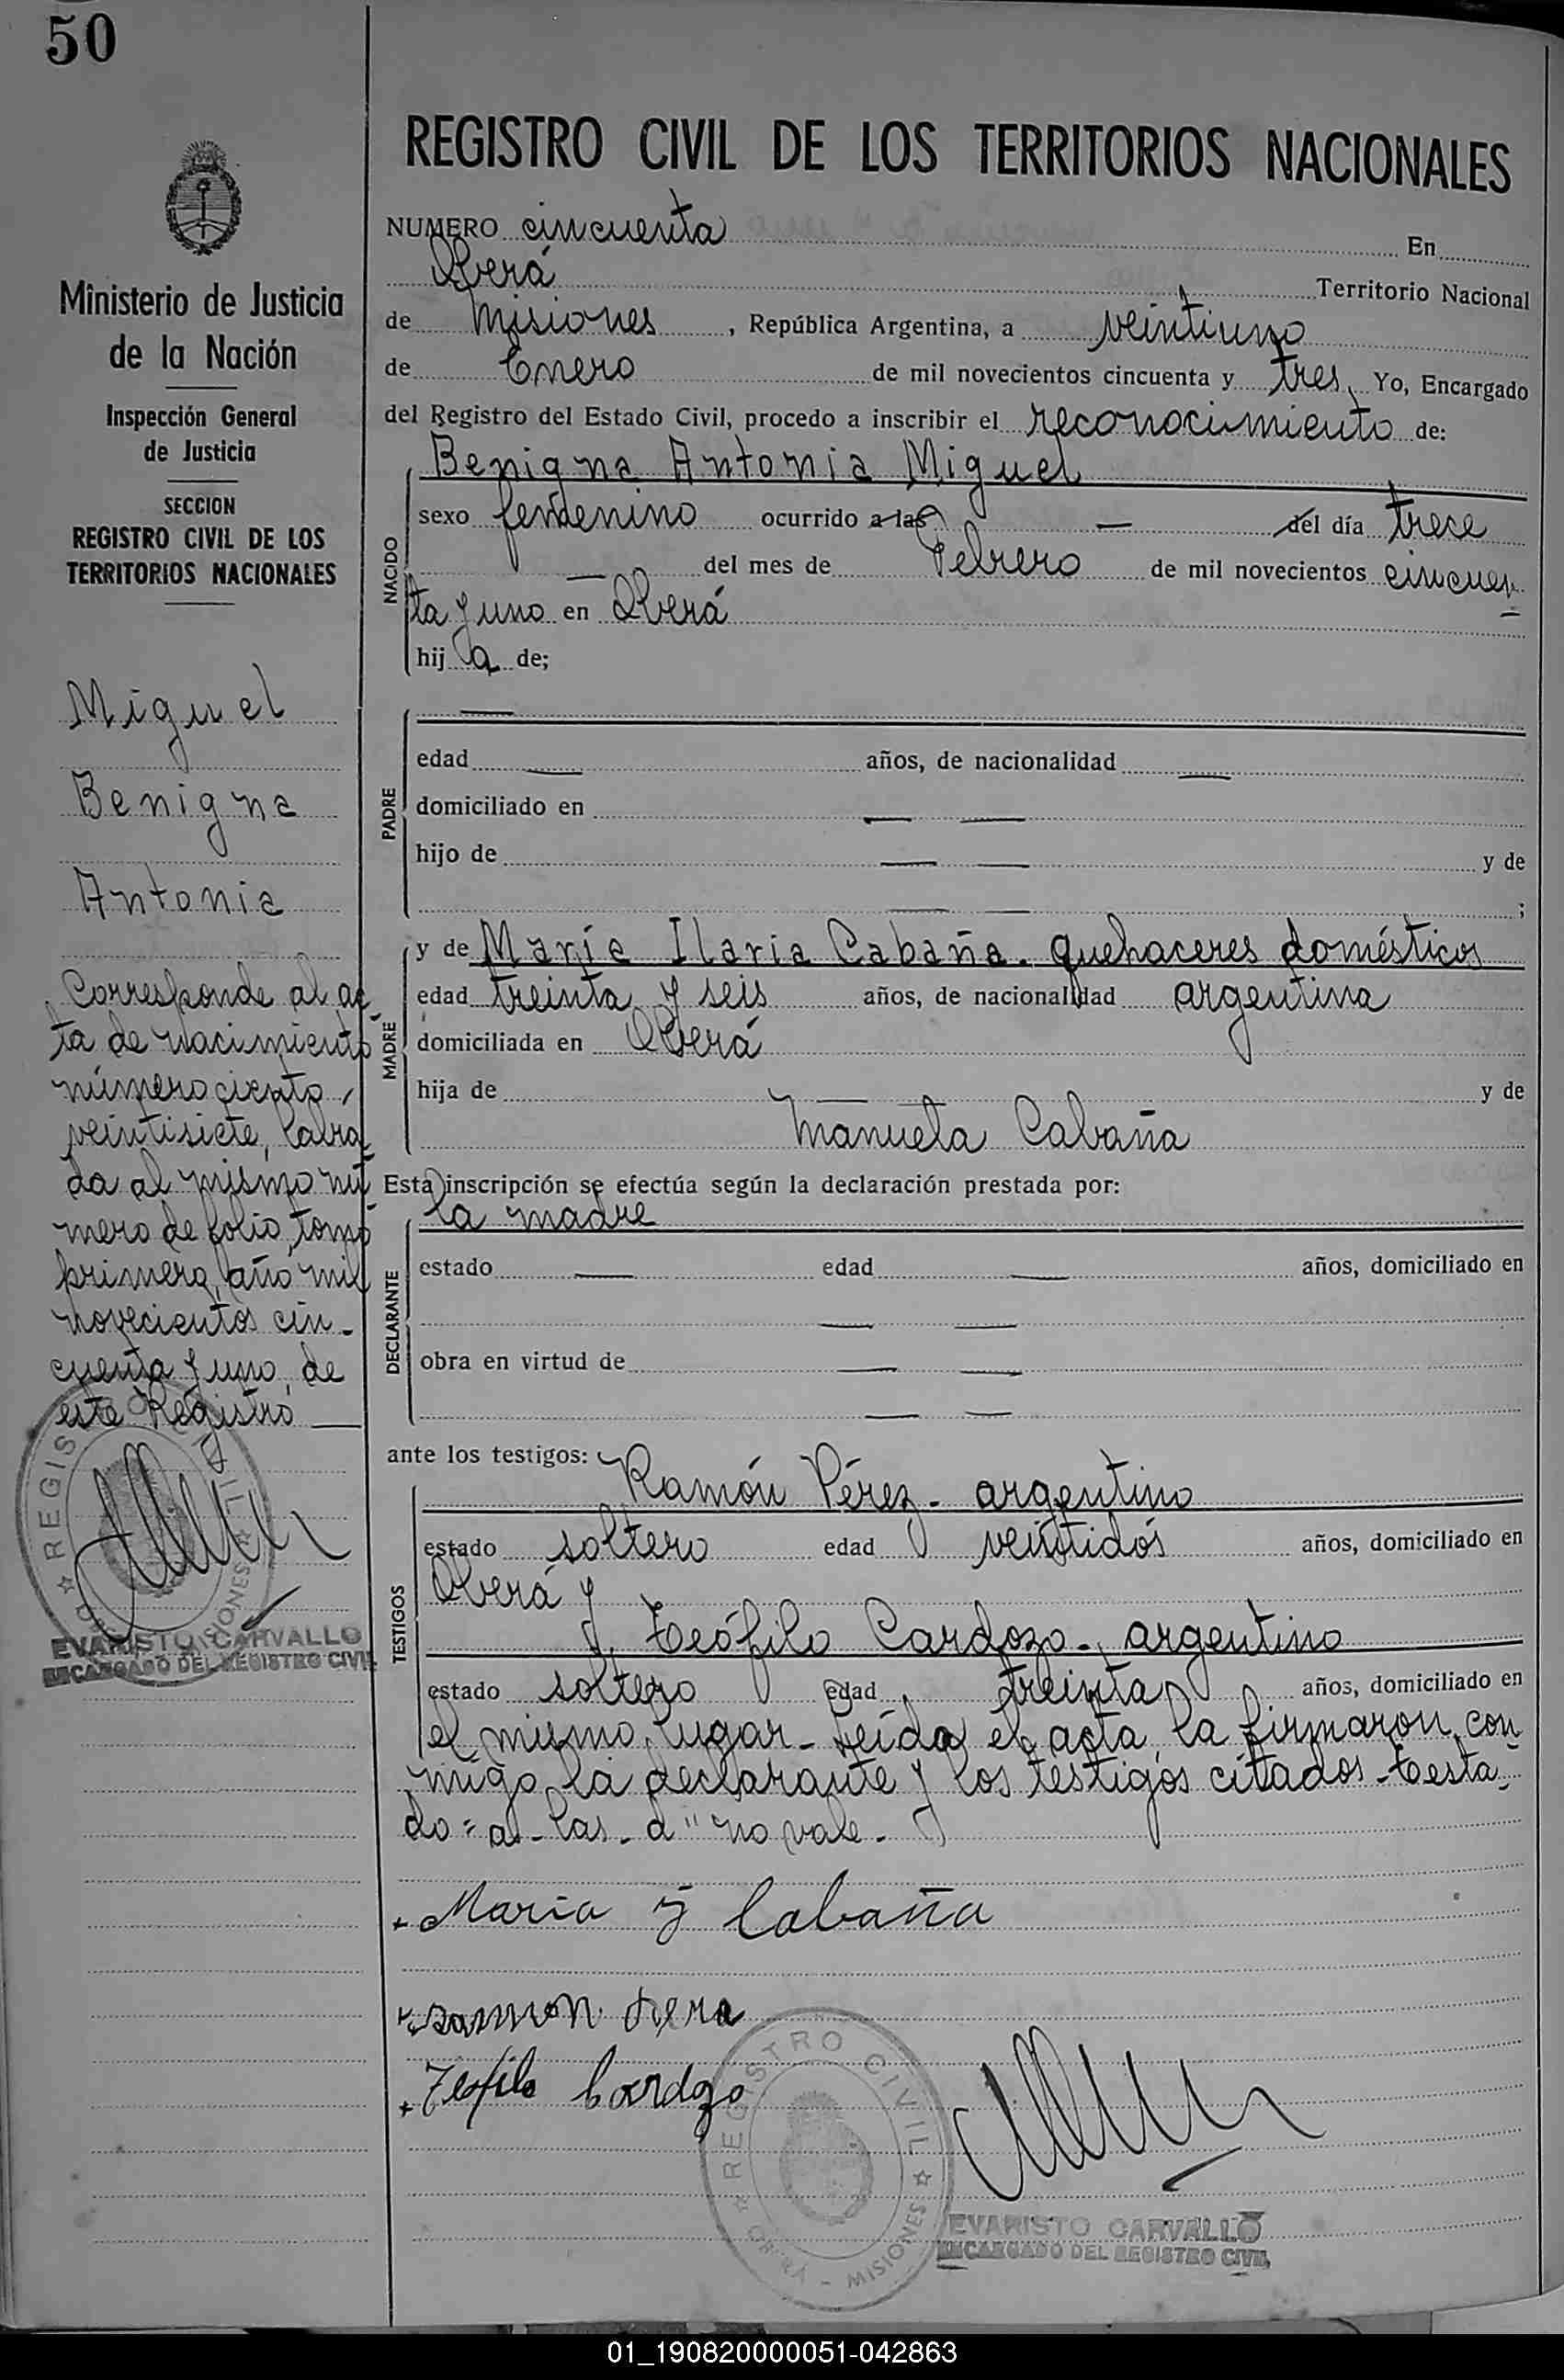 50
Ministerio de Justicia
de la Nación
Inspección General
de Justicia
SECCION
REGISTRO CIVIL DE LOS
TERRITORIOS NACIONALES
Miguel
Benigna
Antonia
Corresponde al ac
ta de nacimiento
número ciento
veintisiete, labra
da al mismo nú
mero de folio, tomo
primero, año mil
novecientos cin-
cuenta y uno, de
este Registro
EVARISTO CARVALLO
ENCARGADO DEL REGISTRO CIVIL
REGISTRO CIVIL DE LOS TERRITORIOS NACIONALES
NUMERO cincuenta En
Oberá Territorio Nacional
de Misiones, República Argentina, a veintiuno
de Enero de mil novecientos cincuenta y tres, Yo, Encargado
del Registro del Estado Civil, procedo a inscribir el reconocimiento de:
Benigna Antonia Miguel
NACIDO
sexo femenino ocurrido a las — del día trece
— del mes de Febrero de mil novecientos cincuen
ta y uno en Oberá
hij a de;
PADRE
—
edad — años, de nacionalidad —
domiciliado en — —
hijo de — — y de
— — ;
MADRE
y de María Ilaria Cabaña. quehaceres domésticos
edad treinta y seis años, de nacionalidad argentina
domiciliada en Oberá
hija de — — y de
Manuela Cabaña
Esta inscripción se efectúa según la declaración prestada por:
DECLARANTE
la madre
estado — edad — años, domiciliado en
— —
obra en virtud de — —
— —
ante los testigos:
TESTIGOS
Ramón Pérez - argentino
estado soltero edad veintidós años, domiciliado en
Oberá y
Teófilo Cardozo - argentino
estado soltero edad treinta años, domiciliado en
el mismo lugar - Leída el acta, la firmaron con
migo la declarante y los testigos citados - Testa-
do = a - las - d" no vale -
Maria y Cabaña
Ramon
Teofilo Cardozo
REGISTRO CIVIL
OBERÁ - MISIONES
EVARISTO CARVALLO
ENCARGADO DEL REGISTRO CIVIL
01_190820000051-042863